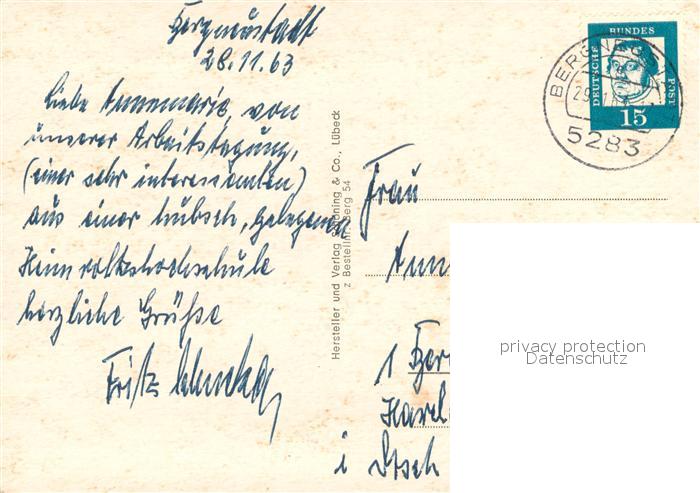 Bergneustadt
28.11.63
Liebe Annemarie, von
unserer Arbeitstagung,
(einer sehr interessanten)
aus einer hübsch, gelegenen
Heimvolkshochschule
herzliche Grüße
Fritz
Hersteller und Verlag Schöning & Co., Lübeck
z Bestellnr. Berg 54
DEUTSCHE BUNDES POST
15
BERGNEUST
5283
Frau
Ann
1 Ber
i
privacy protection
Datenschutz